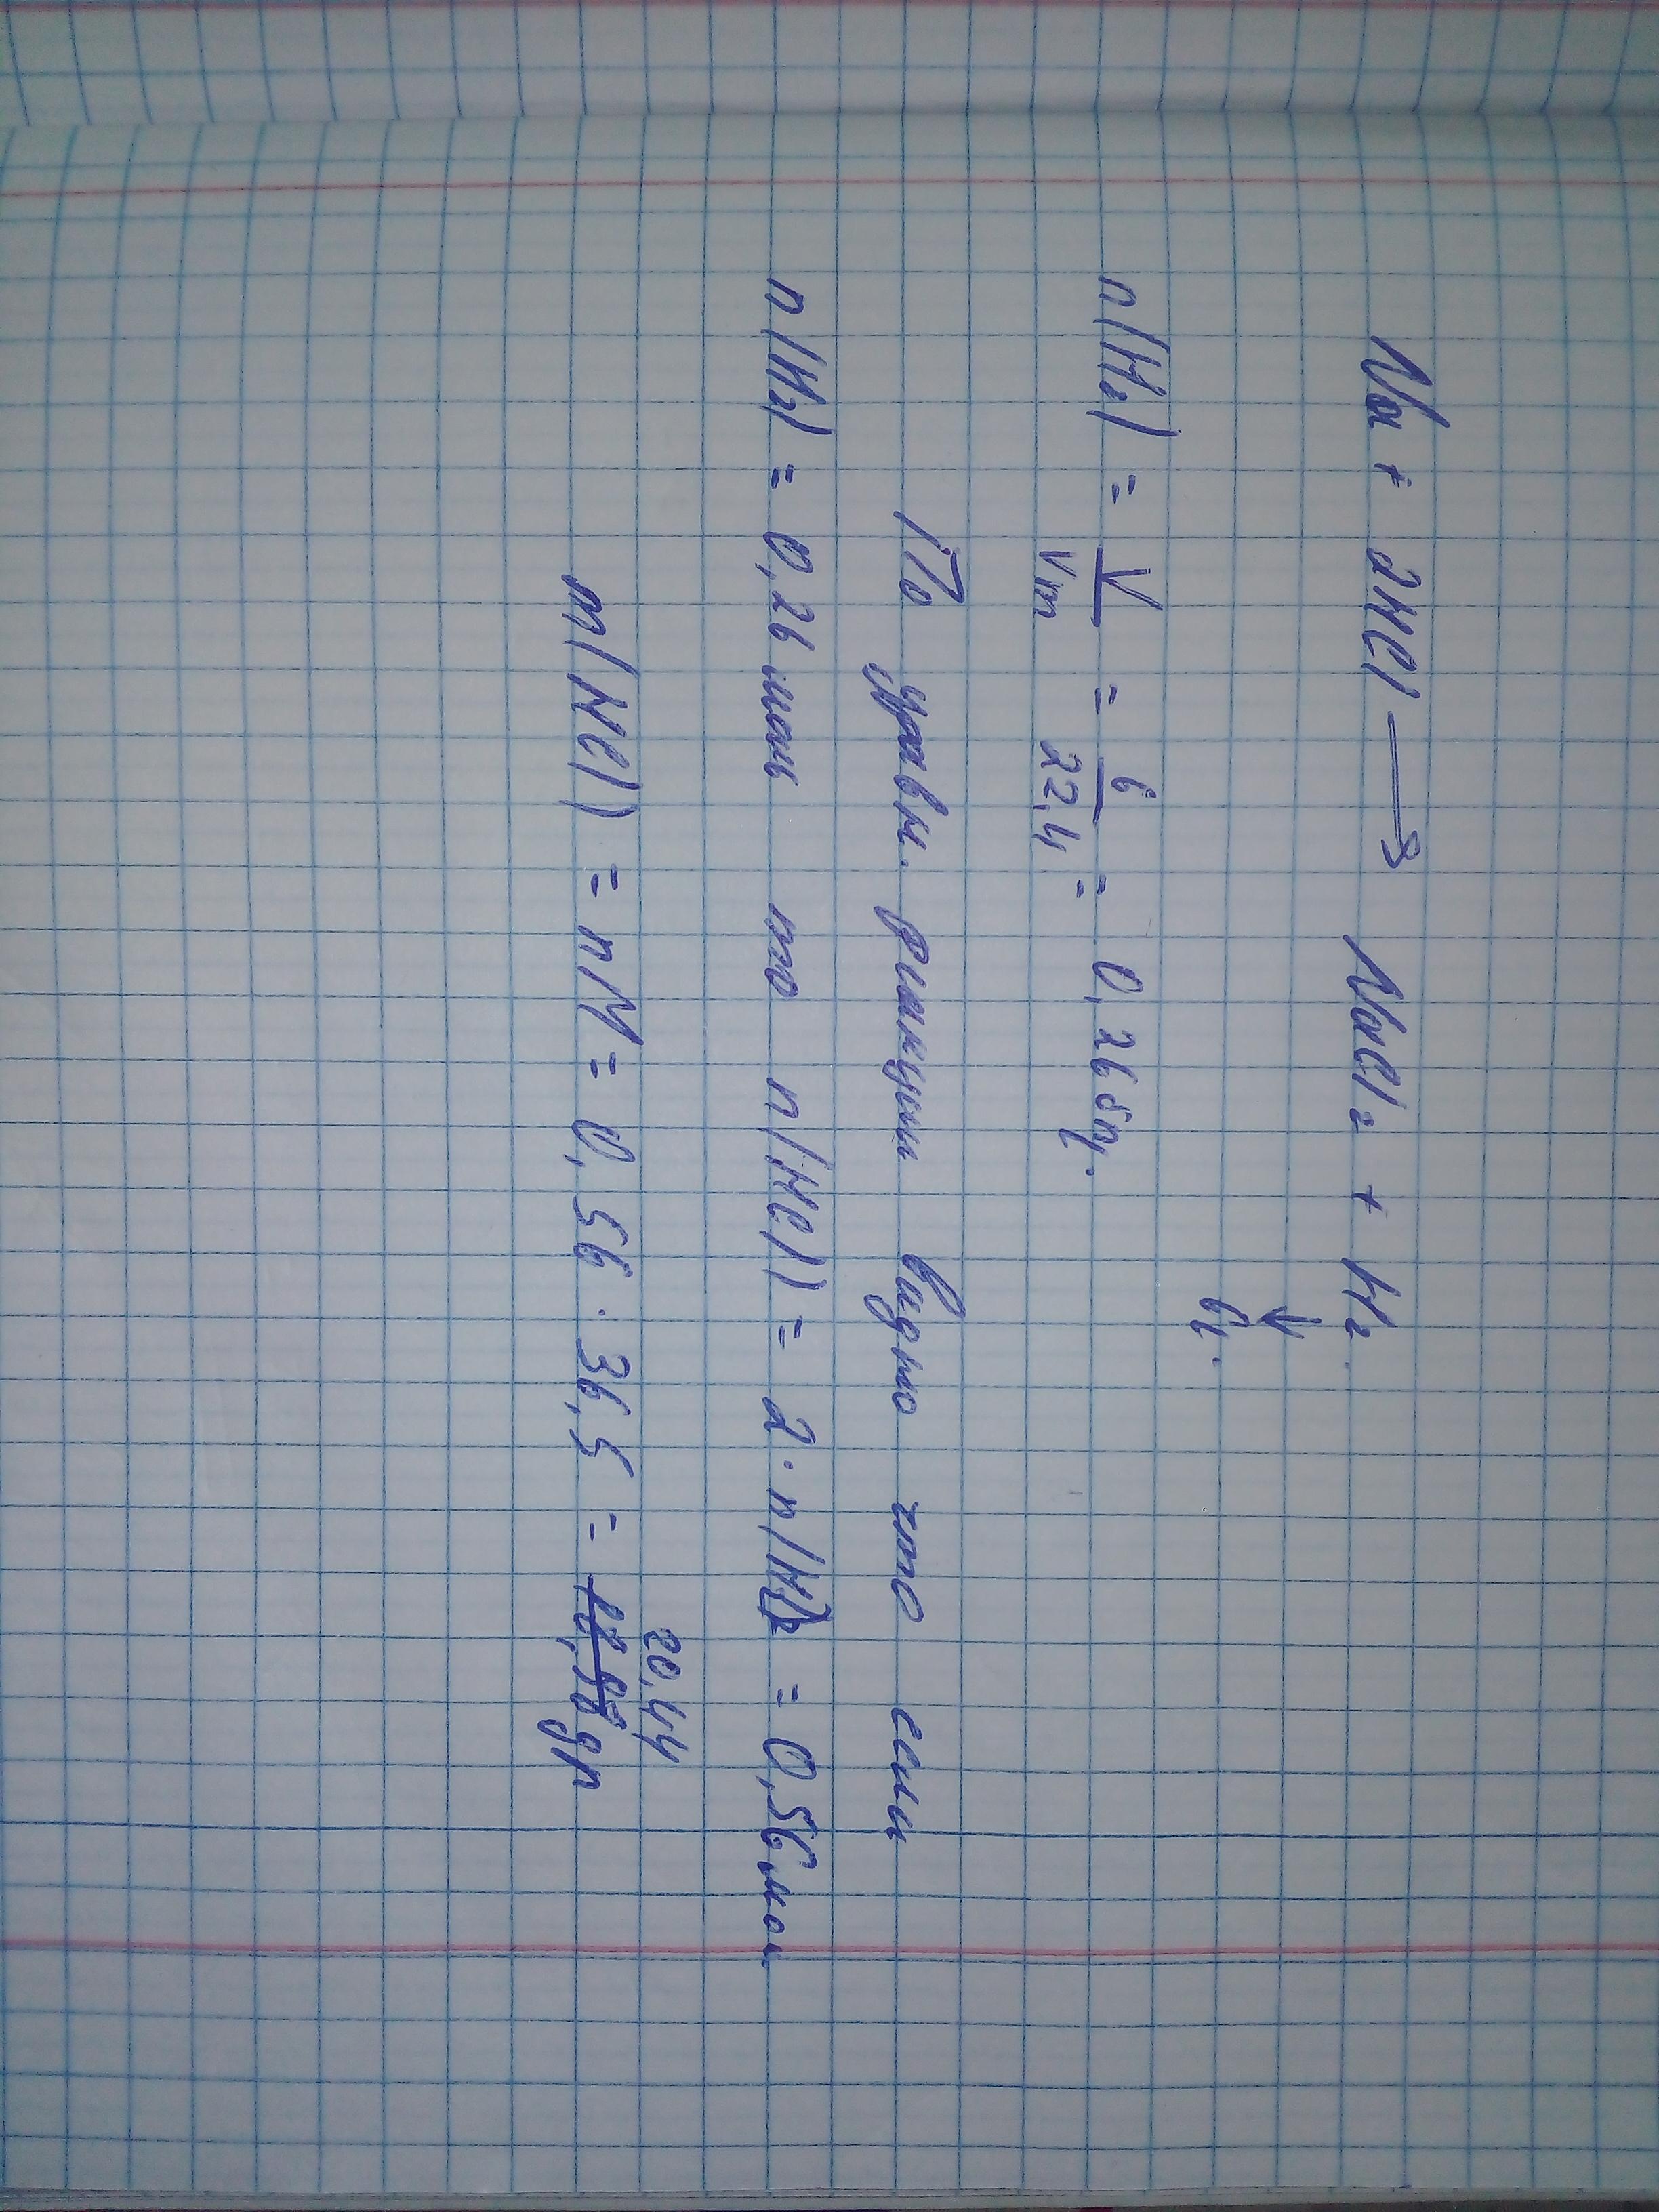 Na + 2HCl ⟶ NaCl₂ + H₂
↓
6л.
n(H₂) = V/Vm = 6/22,4 = 0,26
По уравн. реакции видно что если
n(H₂) = 0,26 моль то n(HCl) = 2 · n(H₂) = 0,56 мол
m(HCl) = nM = 0,56 · 36,5 = 20,44 гр